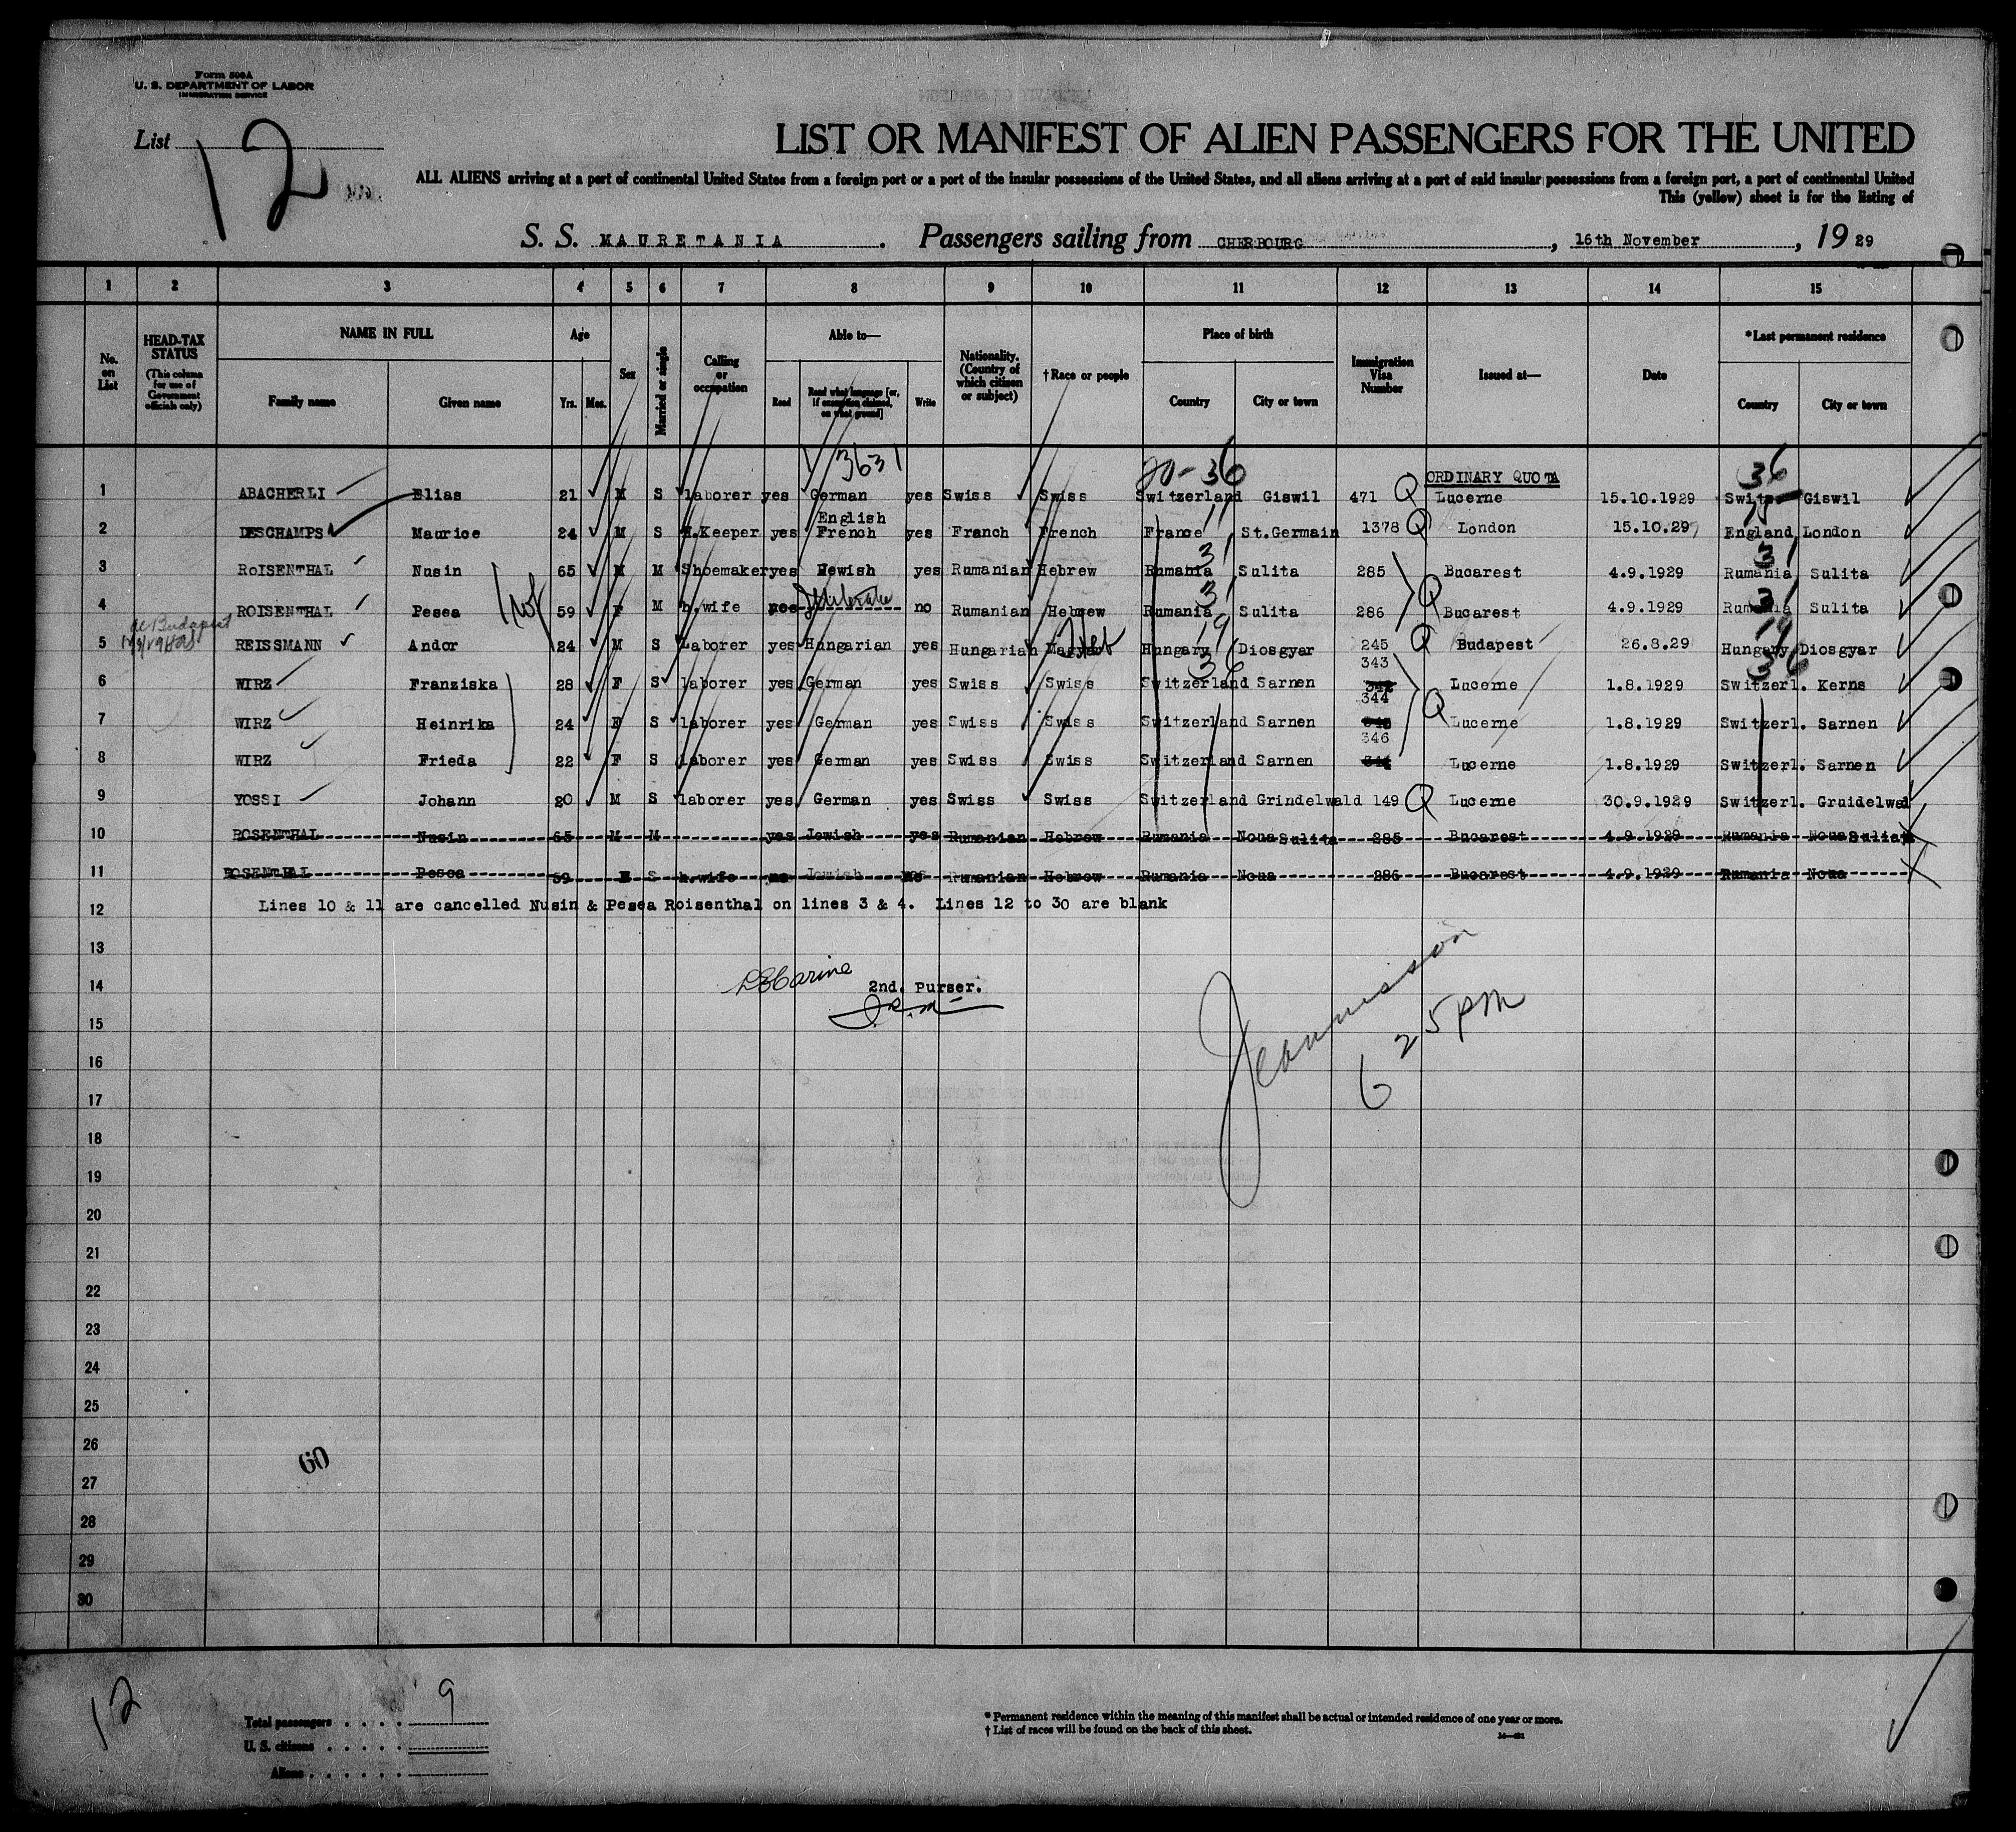 Form 500A
U. S. DEPARTMENT OF LABOR
IMMIGRATION SERVICE
List 12
LIST OR MANIFEST OF ALIEN PASSENGERS FOR THE UNITED
ALL ALIENS arriving at a port of continental United States from a foreign port or a port of the insular possessions of the United States, and all aliens arriving at a port of said insular possessions from a foreign port, a port of continental United
This (yellow) sheet is for the listing of
S. S. MAURETANIA . Passengers sailing from CHERBOURG , 16th November , 19 29
1 2 3 4 5 6 7 8 9 10 11 12 13 14 15
No. on List
HEAD-TAX STATUS (This column for use of Government officials only)
NAME IN FULL Family name Given name
Age Yrs. Mos.
Sex
Married or single
Calling or occupation
Able to— Read Read what language [or, if exemption claimed, on what ground] Write
Nationality. (Country of which citizen or subject)
†Race or people
Place of birth Country City or town
Immigration Visa Number
Issued at—
Date
*Last permanent residence Country City or town
3631 36 36
ORDINARY QUOTA
1 ABACHERLI Elias 21 M S laborer yes German yes Swiss Swiss Switzerland Giswil 471 Q Lucerne 15.10.1929 Switz Giswil
2 DESCHAMPS Maurice 24 M S H.Keeper yes English French yes Franch French France St.Germain 1378 Q London 15.10.29 England London
3 RoISENTHAL Nusin 65 M M Shoemaker yes Jewish yes Rumanian Hebrew Rumania Sulita 285 Bucarest 4.9.1929 Rumania Sulita
4 ROISENTHAL Pesea 59 F M h.wife no no Rumanian Hebrew Rumania Sulita 286 Q Bucarest 4.9.1929 Rumania Sulita
5 REISSMANN Andor 24 M S Laborer yes Hungarian yes Hungarian Magyar Heb Hungary Diosgyar 245 Q Budapest 26.8.29 Hungary Diosgyar
6 WIRZ Franziska 28 F S laborer yes German yes Swiss Swiss Switzerland Sarnen 343 Lucerne 1.8.1929 Switzerl. Kerns
7 WIRZ Heinrika 24 F S laborer yes German yes Swiss Swiss Switzerland Sarnen 344 Q Lucerne 1.8.1929 Switzerl. Sarnen
8 WIRZ Frieda 22 F S laborer yes German yes Swiss Swiss Switzerland Sarnen 346 Lucerne 1.8.1929 Switzerl. Sarnen
9 YOSSI Johann 20 M S laborer yes German yes Swiss Swiss Switzerland Grindelwald 149 Q Lucerne 30.9.1929 Switzerl. Gruidelwal
10 ROSENTHAL Nusin 65 M M yes Jewish yes Rumanian Hebrew Rumania Noua Sulita 285 Bucarest 4.9.1929 Rumania Noua Sulita
11 ROSENTHAL Pesea 59 F S h.wife no Jewish no Rumanian Hebrew Rumania Noua 286 Bucarest 4.9.1929 Rumania Noua
12 Lines 10 & 11 are cancelled Nusin & Pesea Roisenthal on lines 3 & 4. Lines 12 to 30 are blank
13
14 2nd. Purser.
15
16
17
18
19
20
21
22
23
24
25
26
27
28
29
30
6 25 PM
60
12
Total passengers . . . . 9
U. S. citizens . . . . .
Aliens . . . . . .
* Permanent residence within the meaning of this manifest shall be actual or intended residence of one year or more.
† List of races will be found on the back of this sheet.